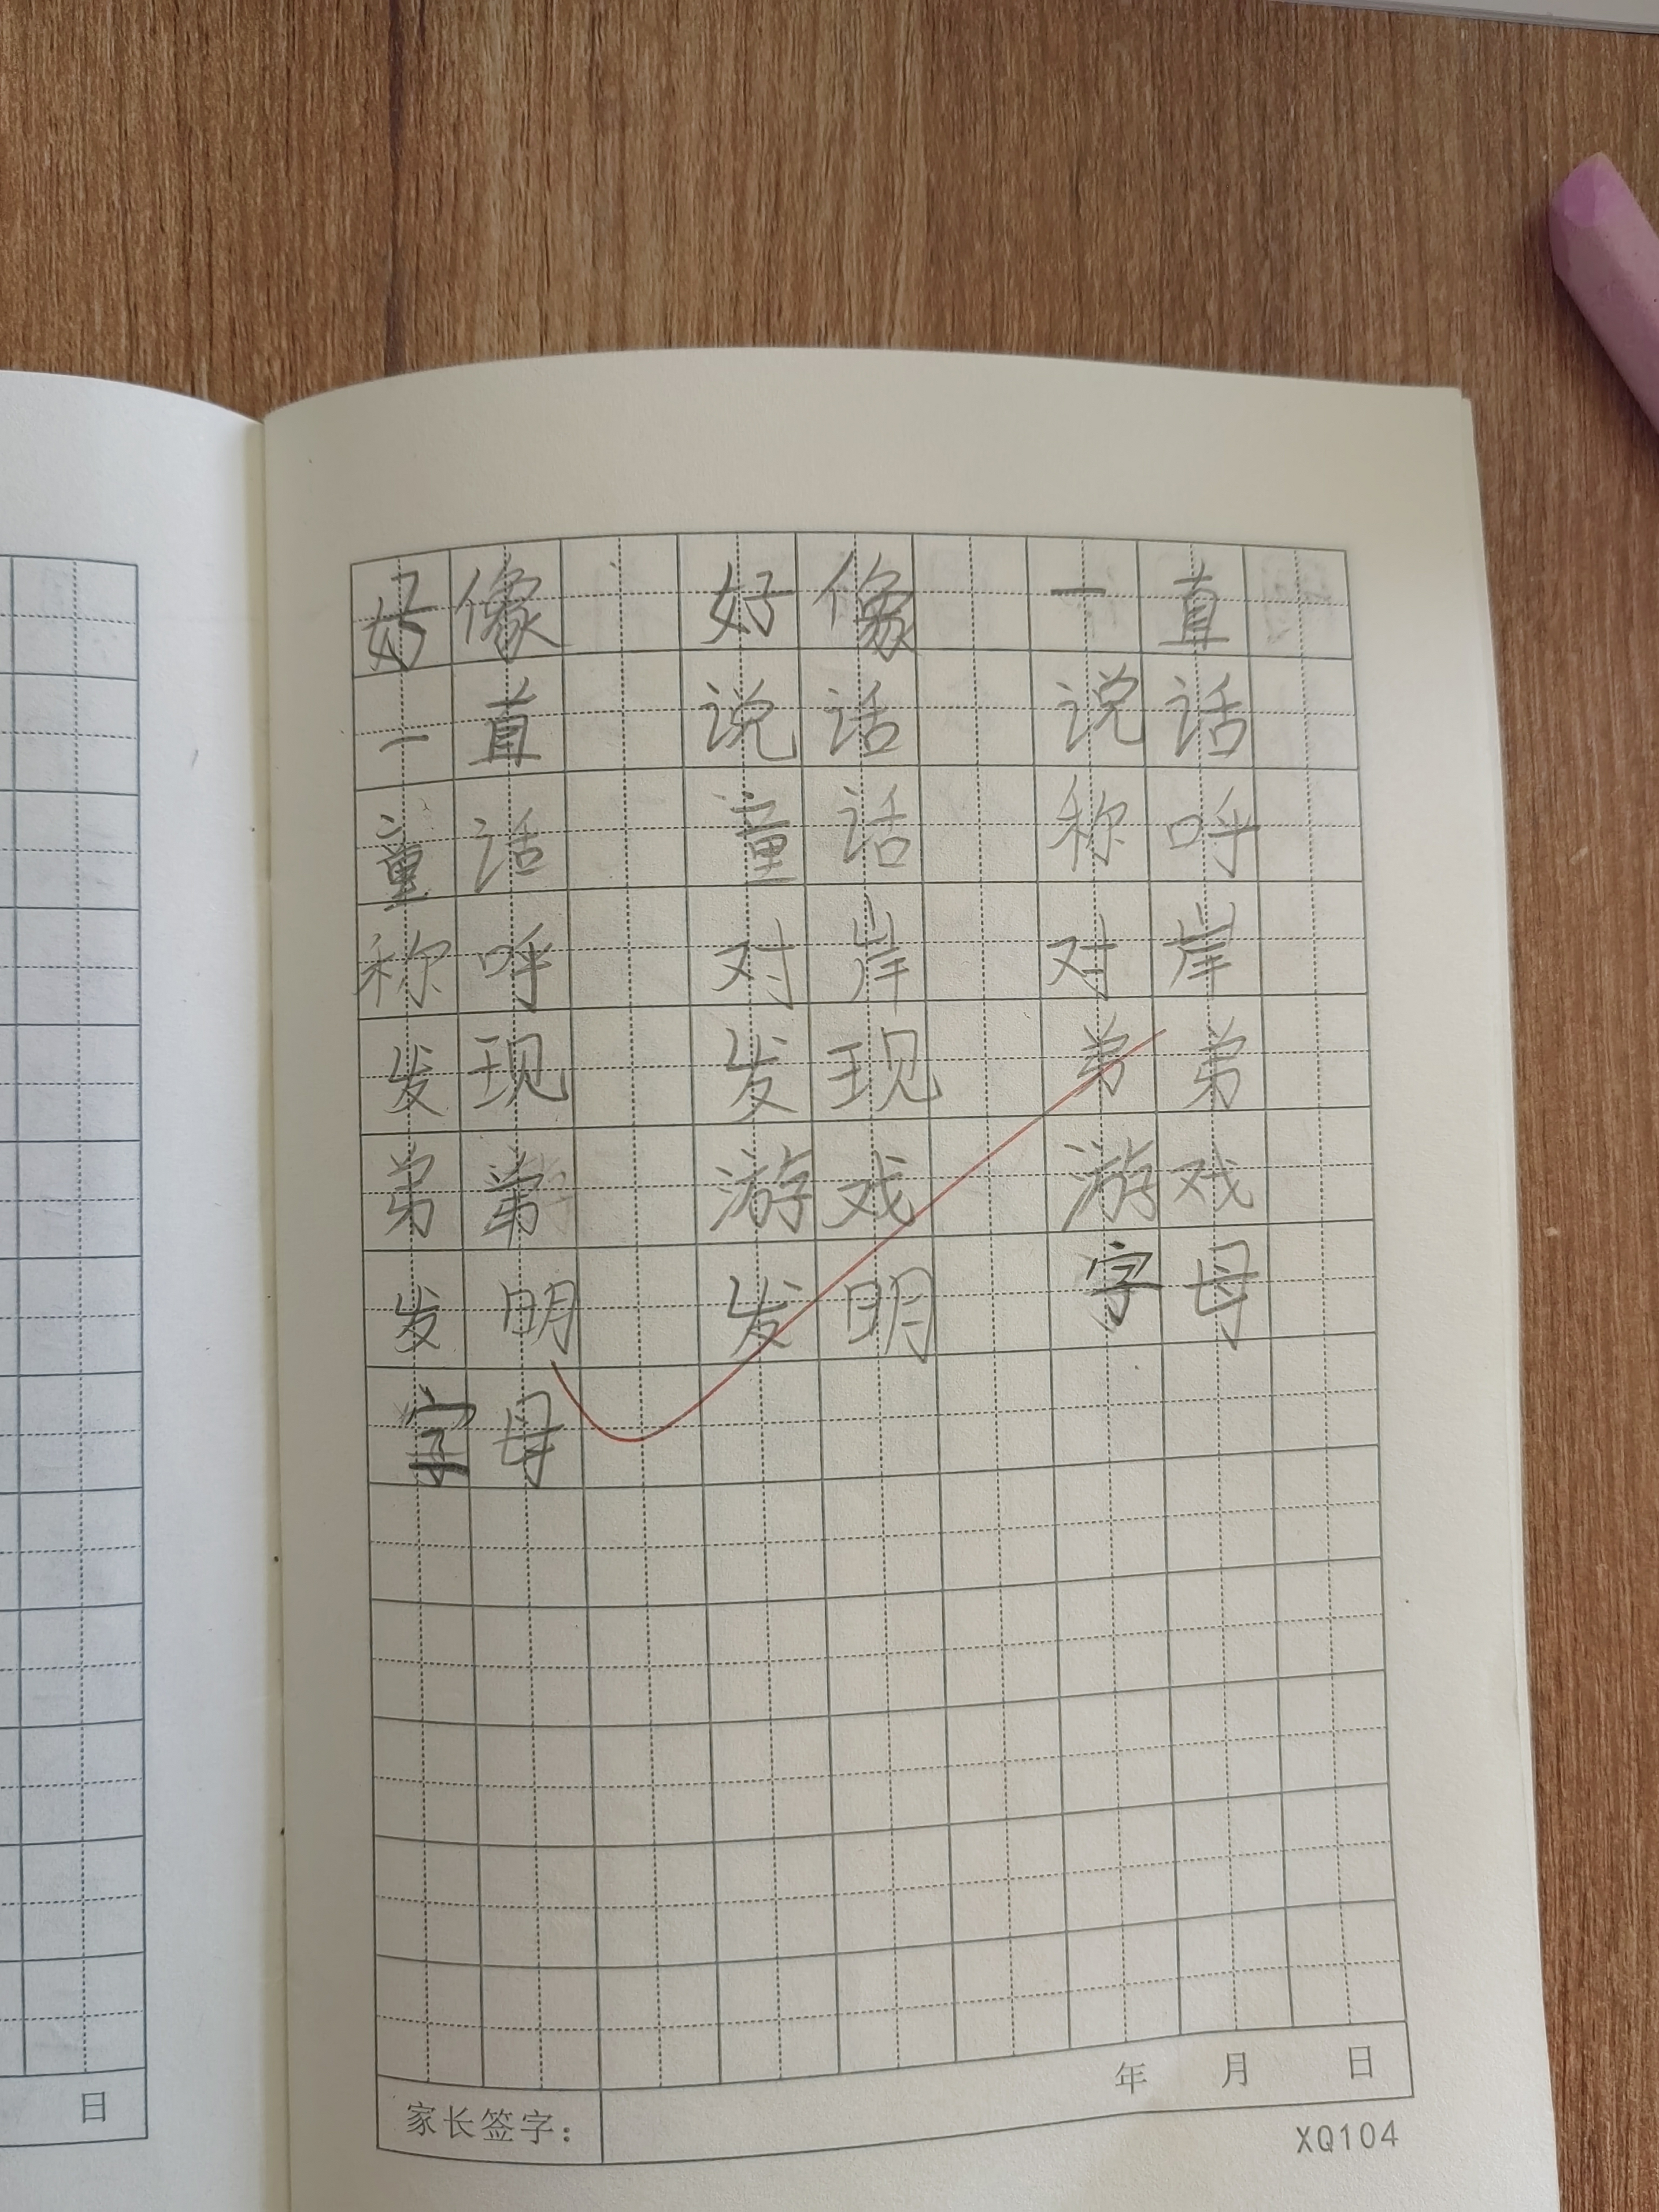 好像 好像 一直
一直 说话 说话
童话 童话 称呼
称呼 对岸 对岸
发现 发现 弟弟
弟弟 游戏 游戏
发明 发明 字母
字母
年 月 日
家长签字：
XQ104
日